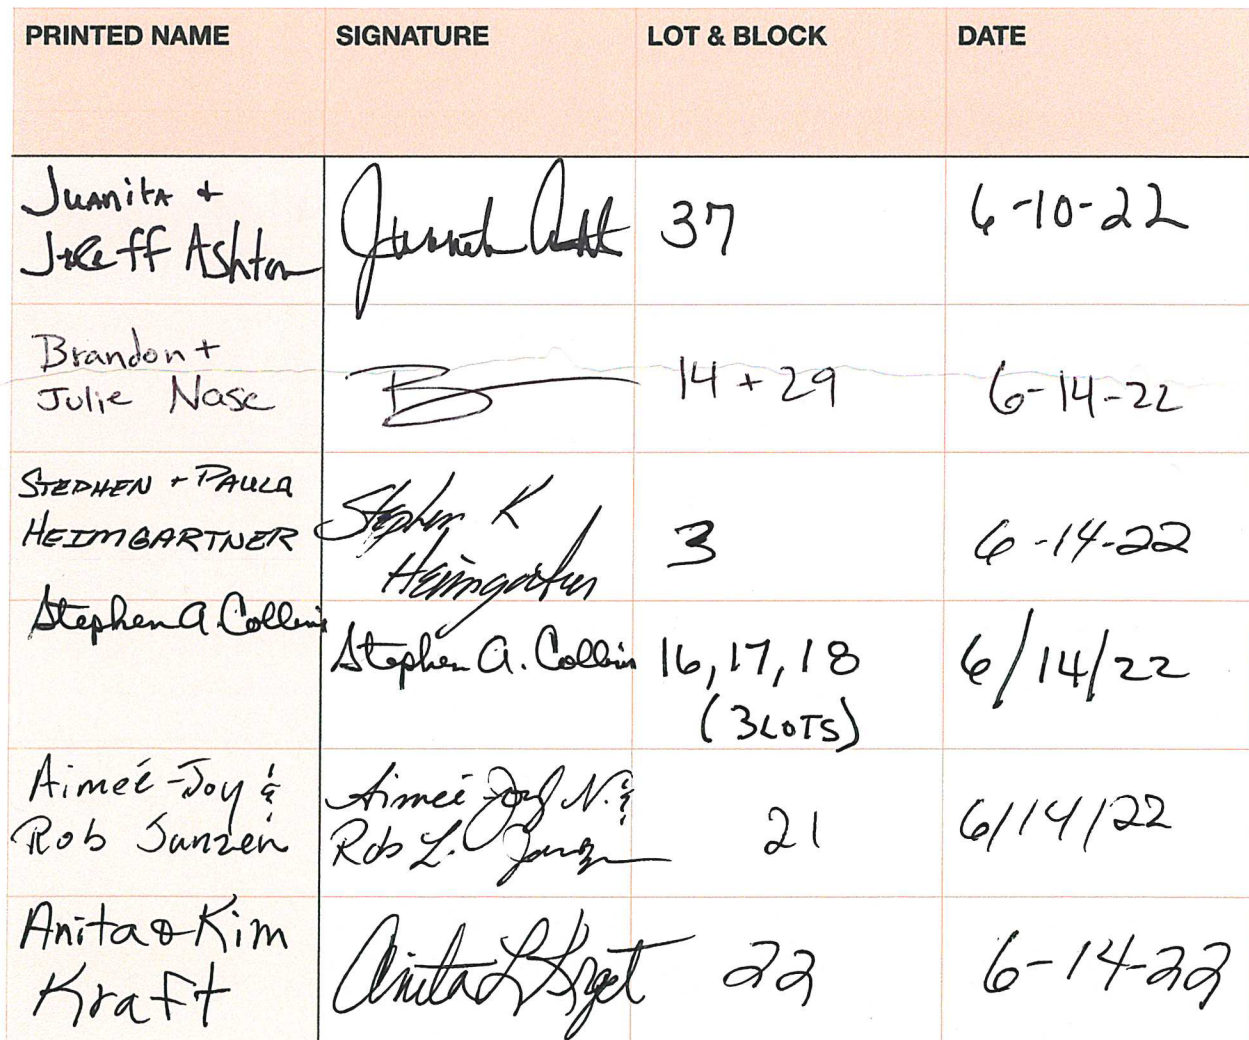 PRINTED NAME SIGNATURE LOT & BLOCK DATE
Juanita + 
Jeff Ashton 37 6-10-22
Brandon +
Julie Nase B 14 + 29 6-14-22
STEPHEN + PAULA Stephen K
HEIMGARTNER Heimgartner 3 6-14-22
Stephen A. Collins Stephen A. Collins 16, 17, 18 6/14/22
(3 LOTS)
Aimeé-Joy & Aimeé Joy N. &
Rob Janzen Rob L. Janzen 21 6/14/22
Anita & Kim
Kraft Anita L Kraft 22 6-14-22